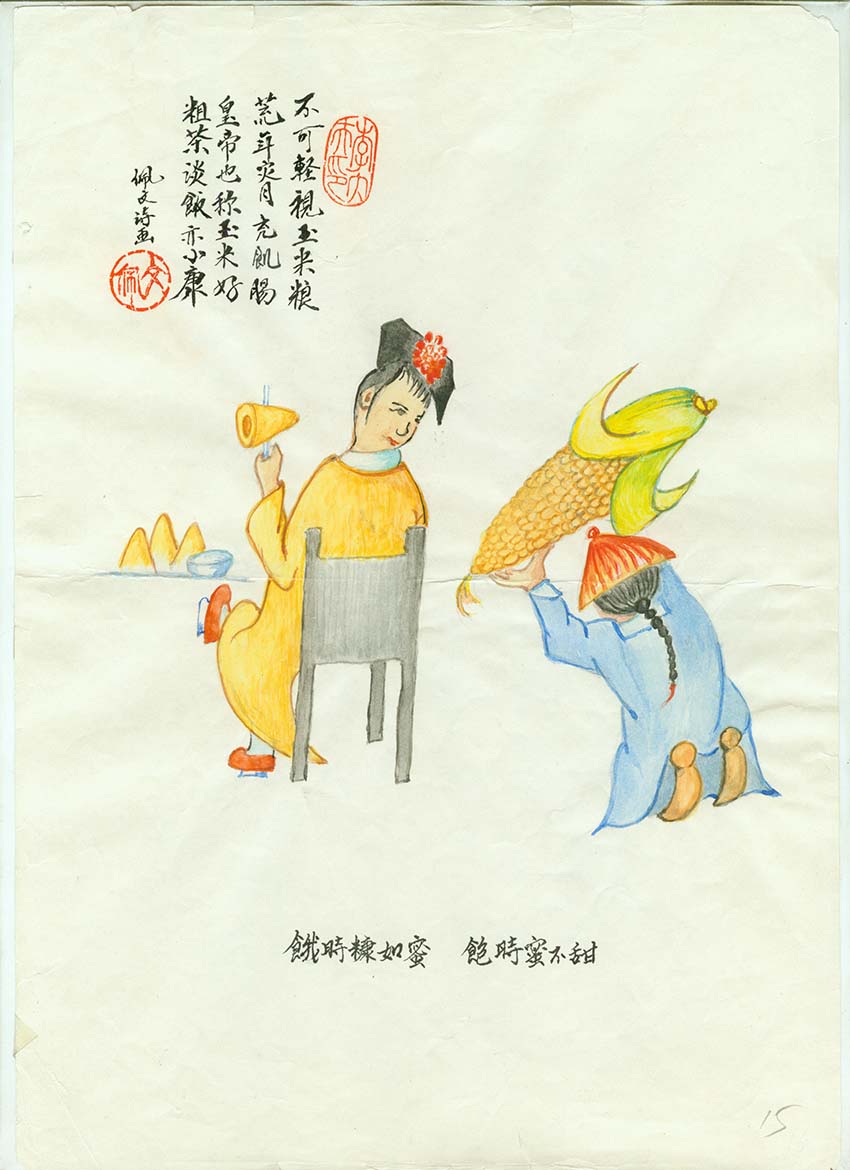 不可軽視玉米粮
荒年灾月充飢腸
皇帝也称玉米好
粗茶淡飯亦小康
佩文诗画
文佩
餓時糠如蜜 飽時蜜不甜
15